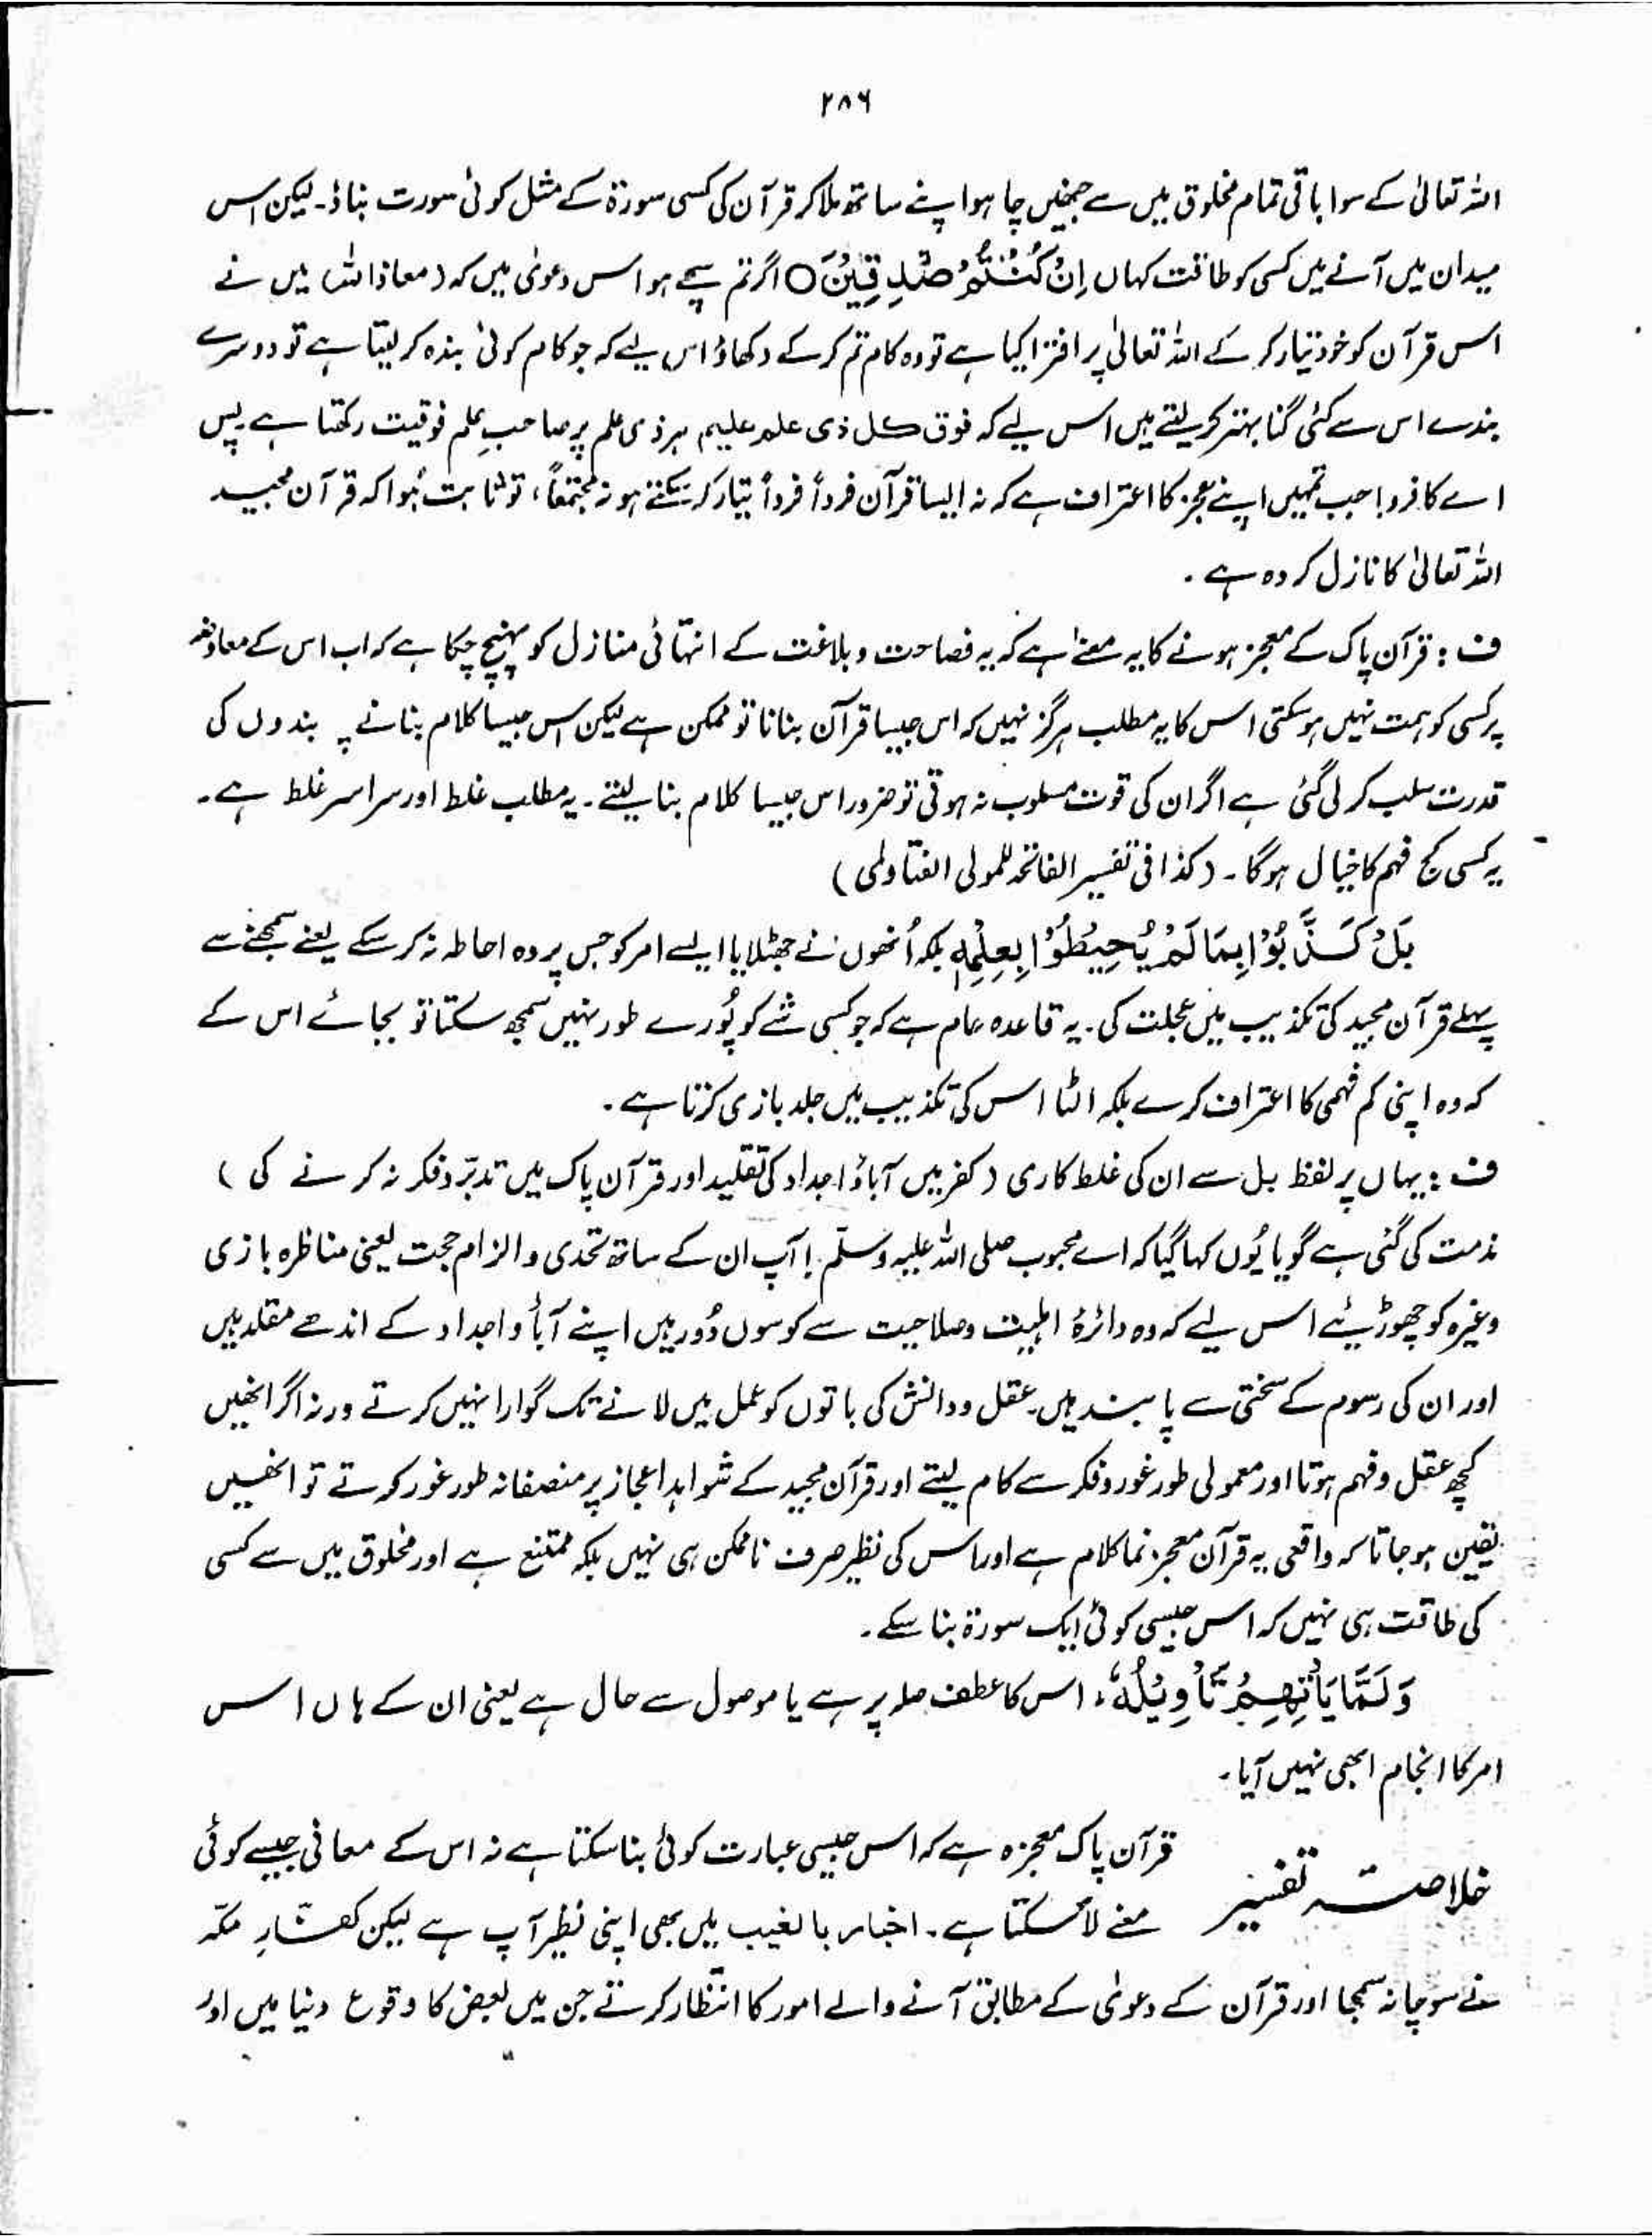 ۲۸۶
اللہ تعالیٰ کے سوا باقی تمام مخلوق میں سے جنھیں چاہو اپنے ساتھ ملا کر قرآن کی کسی سورۃ کے مثل کوئی سورت بناؤ۔ لیکن اس
میدان میں آنے میں کسی کو طاقت کہاں اِنْ كُنْتُمْ صٰدِقِيْنَ ○ اگر تم سچے ہو اس دعویٰ میں کہ (معاذ اللہ) میں نے
اس قرآن کو خود تیار کر کے اللہ تعالیٰ پر افترا کیا ہے تو وہ کام تم کر کے دکھاؤ اس لیے کہ جو کام کوئی بندہ کر لیتا ہے تو دوسرے
بندے اس سے کئی گنا بہتر کر لیتے ہیں اس لیے کہ فوق کل ذی علم علیم ہر ذی علم پر صاحبِ علم فوقیت رکھتا ہے پس
اے کافرو! جب تمہیں اپنے عجز کا اعتراف ہے کہ نہ ایسا قرآن فرداً فرداً تیار کر سکتے ہو نہ مجتمعاً، تو ثابت ہُوا کہ قرآن مجید
اللہ تعالیٰ کا نازل کردہ ہے ۔
ف : قرآن پاک کے معجز ہونے کا یہ معنےٰ ہے کہ یہ فصاحت و بلاغت کے انتہائی منازل کو پہنچ چکا ہے کہ اب اس کے معاوضہ
پر کسی کو ہمت نہیں ہو سکتی اس کا یہ مطلب ہرگز نہیں کہ اس جیسا قرآن بنانا تو ممکن ہے لیکن اس جیسا کلام بنانے پر بندوں کی
قدرت سلب کر لی گئی ہے اگر ان کی قوت مسلوب نہ ہوتی تو ضرور اس جیسا کلام بنا لیتے۔ یہ مطلب غلط اور سراسر غلط ہے۔
یہ کسی کج فہم کا خیال ہوگا۔ (کذا فی تفسیر الفاتحہ للمولی الفناری)
بَلْ كَذَّبُوْا بِمَا لَمْ يُحِيْطُوْا بِعِلْمِهٖ بلکہ اُنھوں نے جھٹلایا ایسے امر کو جس پر وہ احاطہ نہ کر سکے یعنے سمجھنے سے
پہلے قرآن مجید کی تکذیب میں عجلت کی۔ یہ قاعدہ عام ہے کہ جو کسی شے کو پُورے طور نہیں سمجھ سکتا تو بجائے اس کے
کہ وہ اپنی کم فہمی کا اعتراف کرے بلکہ الٹا اس کی تکذیب میں جلد بازی کرتا ہے ۔
ف : یہاں پر لفظ بل سے ان کی غلط کاری (کفر میں آباؤ اجداد کی تقلید اور قرآن پاک میں تدبّر و فکر نہ کرنے کی )
مذمت کی گئی ہے گویا یُوں کہا گیا کہ اے محبوب صلی اللہ علیہ وسلّم ! آپ ان کے ساتھ تحدی و الزام حجت یعنی مناظرہ بازی
وغیرہ کو چھوڑیئے اس لیے کہ وہ دائرۂ اہلیت و صلاحیت سے کوسوں دُور ہیں اپنے آبأ و اجداد کے اندھے مقلد ہیں
اور ان کی رسوم کے سختی سے پابند ہیں۔ عقل و دانش کی باتوں کو عمل میں لانے تک گوارا نہیں کرتے ورنہ اگر انھیں
کچھ عقل و فہم ہوتا اور معمولی طور غور و فکر سے کام لیتے اور قرآن مجید کے شواہد اعجاز پر منصفانہ طور غور کرتے تو انھیں
یقین ہو جاتا کہ واقعی یہ قرآن معجز نما کلام ہے اور اس کی نظیر صرف ناممکن ہی نہیں بلکہ ممتنع ہے اور مخلوق میں سے کسی
کی طاقت ہی نہیں کہ اس جیسی کوئی ایک سورۃ بنا سکے۔
وَلَمَّا يَاْتِهِمْ تَاْوِيْلُهٗ، اس کا عطف صلہ پر ہے یا موصول سے حال ہے یعنی ان کے ہاں اس
امر کا انجام ابھی نہیں آیا۔
خلاصہ تفسیر
قرآن پاک معجزہ ہے کہ اس جیسی عبارت کوئی بنا سکتا ہے نہ اس کے معانی جیسے کوئی
معنے لا سکتا ہے۔ اخبار بالغیب میں بھی اپنی نظیر آپ ہے لیکن کفّارِ مکّہ
نے سوچا نہ سمجھا اور قرآن کے دعویٰ کے مطابق آنے والے امور کا انتظار کرتے جن میں بعض کا وقوع دنیا میں اور